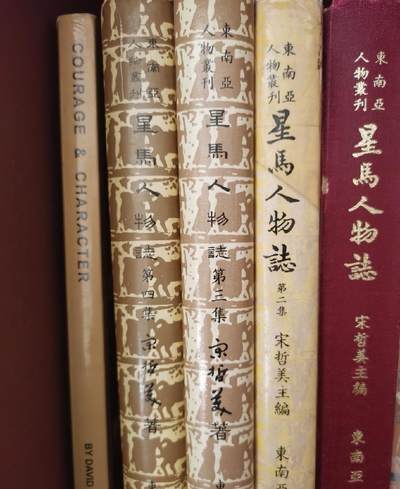 COURAGE & CHARACTER
BY DAVID
東南亞
人物叢刊
星馬人物誌
第四集
宋哲美著
東南亞
人物叢刊
星馬人物誌
第三集
宋哲美著
東南亞
人物叢刊
星馬人物誌
第二集
宋哲美主編
東南亞
東南亞
人物叢刊
星馬人物誌
宋哲美主編
東南亞